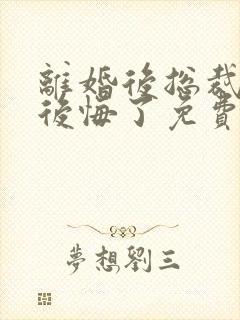 離婚後總裁
後悔了免費
夢想劉三